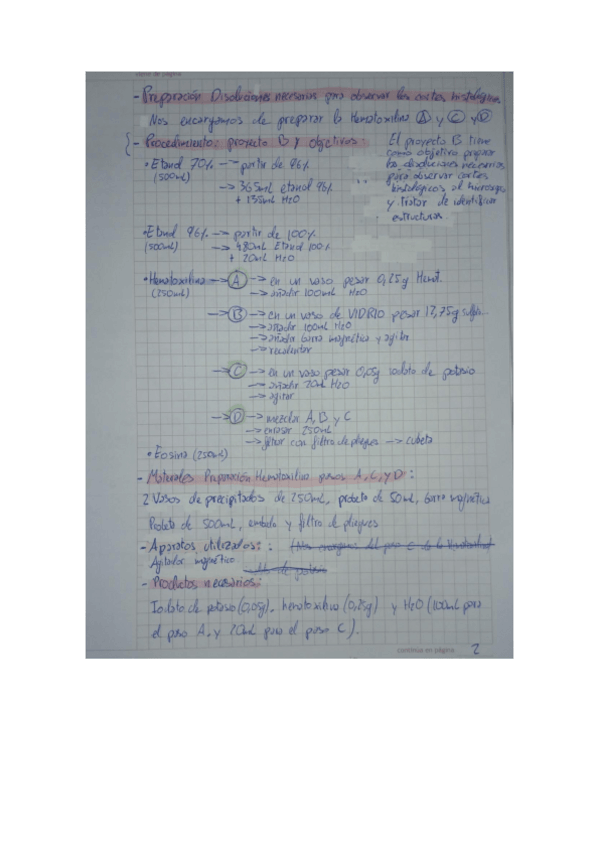 - Preparación Disoluciones necesarias para observar los cortes histológicos
Nos encargamos de preparar la Hematoxilina A y C y D
- Procedimiento: proyecto B y objetivos:
El proyecto B tiene
como objetivo preparar
las disoluciones necesarias
para observar cortes
histológicos al
y tratar de identificar
estructuras.
• Etanol 70% --> partir de 96%
(500mL)
--> 365mL etanol 96%
+ 135mL H2O
• Etanol 96% --> partir de 100%
(500mL) --> 480mL Etanol 100%
+ 20mL H2O
• Hematoxilina --> A --> en un vaso pesar 0,25g Hemat.
(250mL) --> añadir 100mL H2O
--> B --> en un vaso de VIDRIO pesar 12,75g
--> añadir 100mL H2O
--> añadir barra magnética y agitar
--> recalentar
--> C --> en un vaso pesar 0,05g iodato de potasio
--> añadir 20mL H2O
--> agitar
--> D --> mezclar A, B y C
--> enrasar 250mL
--> filtrar con filtro de pliegues --> cubeta
• Eosina (250mL)
- Materiales Preparación Hematoxilina pasos A, C, y D:
2 Vasos de precipitados de 250mL, probeta de 50mL, barra magnética
Probeta de 500mL, embudo y filtro de pliegues
- Aparatos utilizados:
Agitador magnético
- Productos necesarios:
Iodato de potasio (0,05g), hematoxilina (0,25g) y H2O (100mL para
el paso A, y 20mL para el paso C).
continúa en página 2